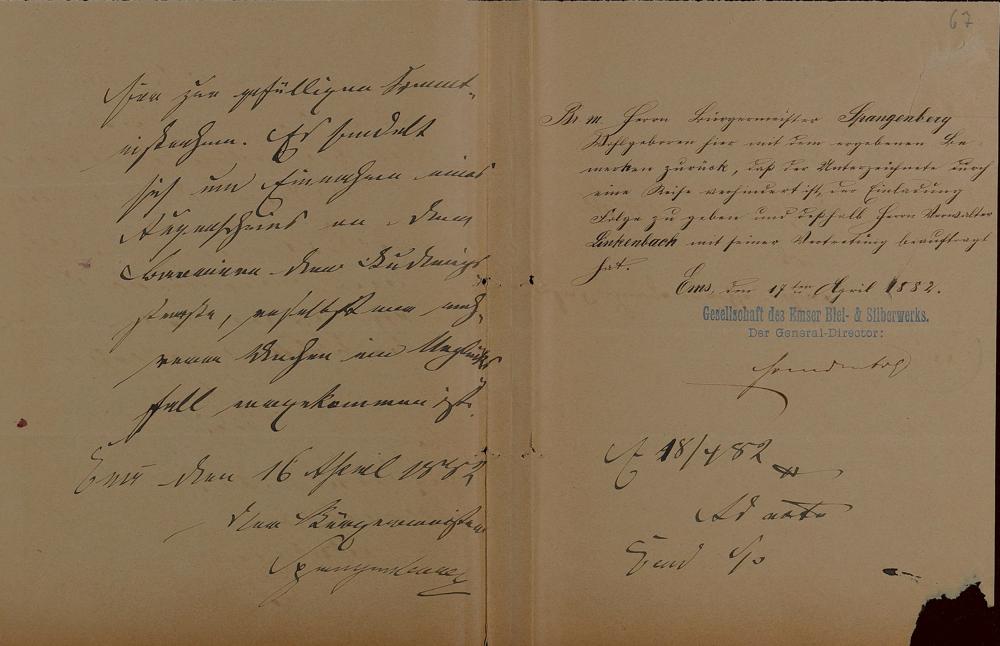 hier zur gefälligen Kennt-
nißnahme. Es handelt
sich um Einnahme eines
Augenscheins an der
Barriere der
straße, woselbst vor meh-
reren Wochen ein Unglücks
fall vorgekommen ist.
Ems den 16 April 1882
Der Bürgermeister
Spangenberg
67
Br. m. Herrn Bürgermeister Spangenberg
Wohlgeboren hier mit dem ergebenen Be-
merken zurück, daß der Unterzeichnete durch
eine Reise verhindert ist, der Einladung
Folge zu geben und deßhalb Herrn Verwalter
Linkenbach mit seiner Vertretung beauftragt
hat.
Ems, den 17ten April 1882.
Gesellschaft des Emser Blei- & Silberwerks.
Der General-Director:
18/4 82
Ad acta